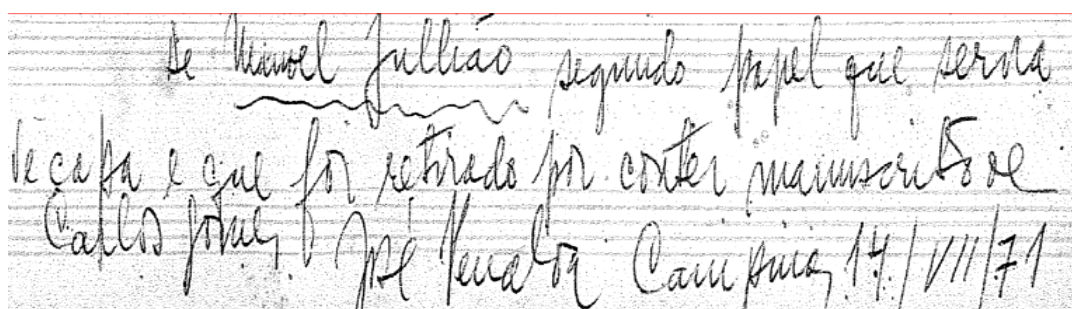 de Manoel Jullião segundo papel que servia
de capa e que foi retirado por conter manuscrito de
Carlos Gomes. José Penalva Campinas, 14/VII/71